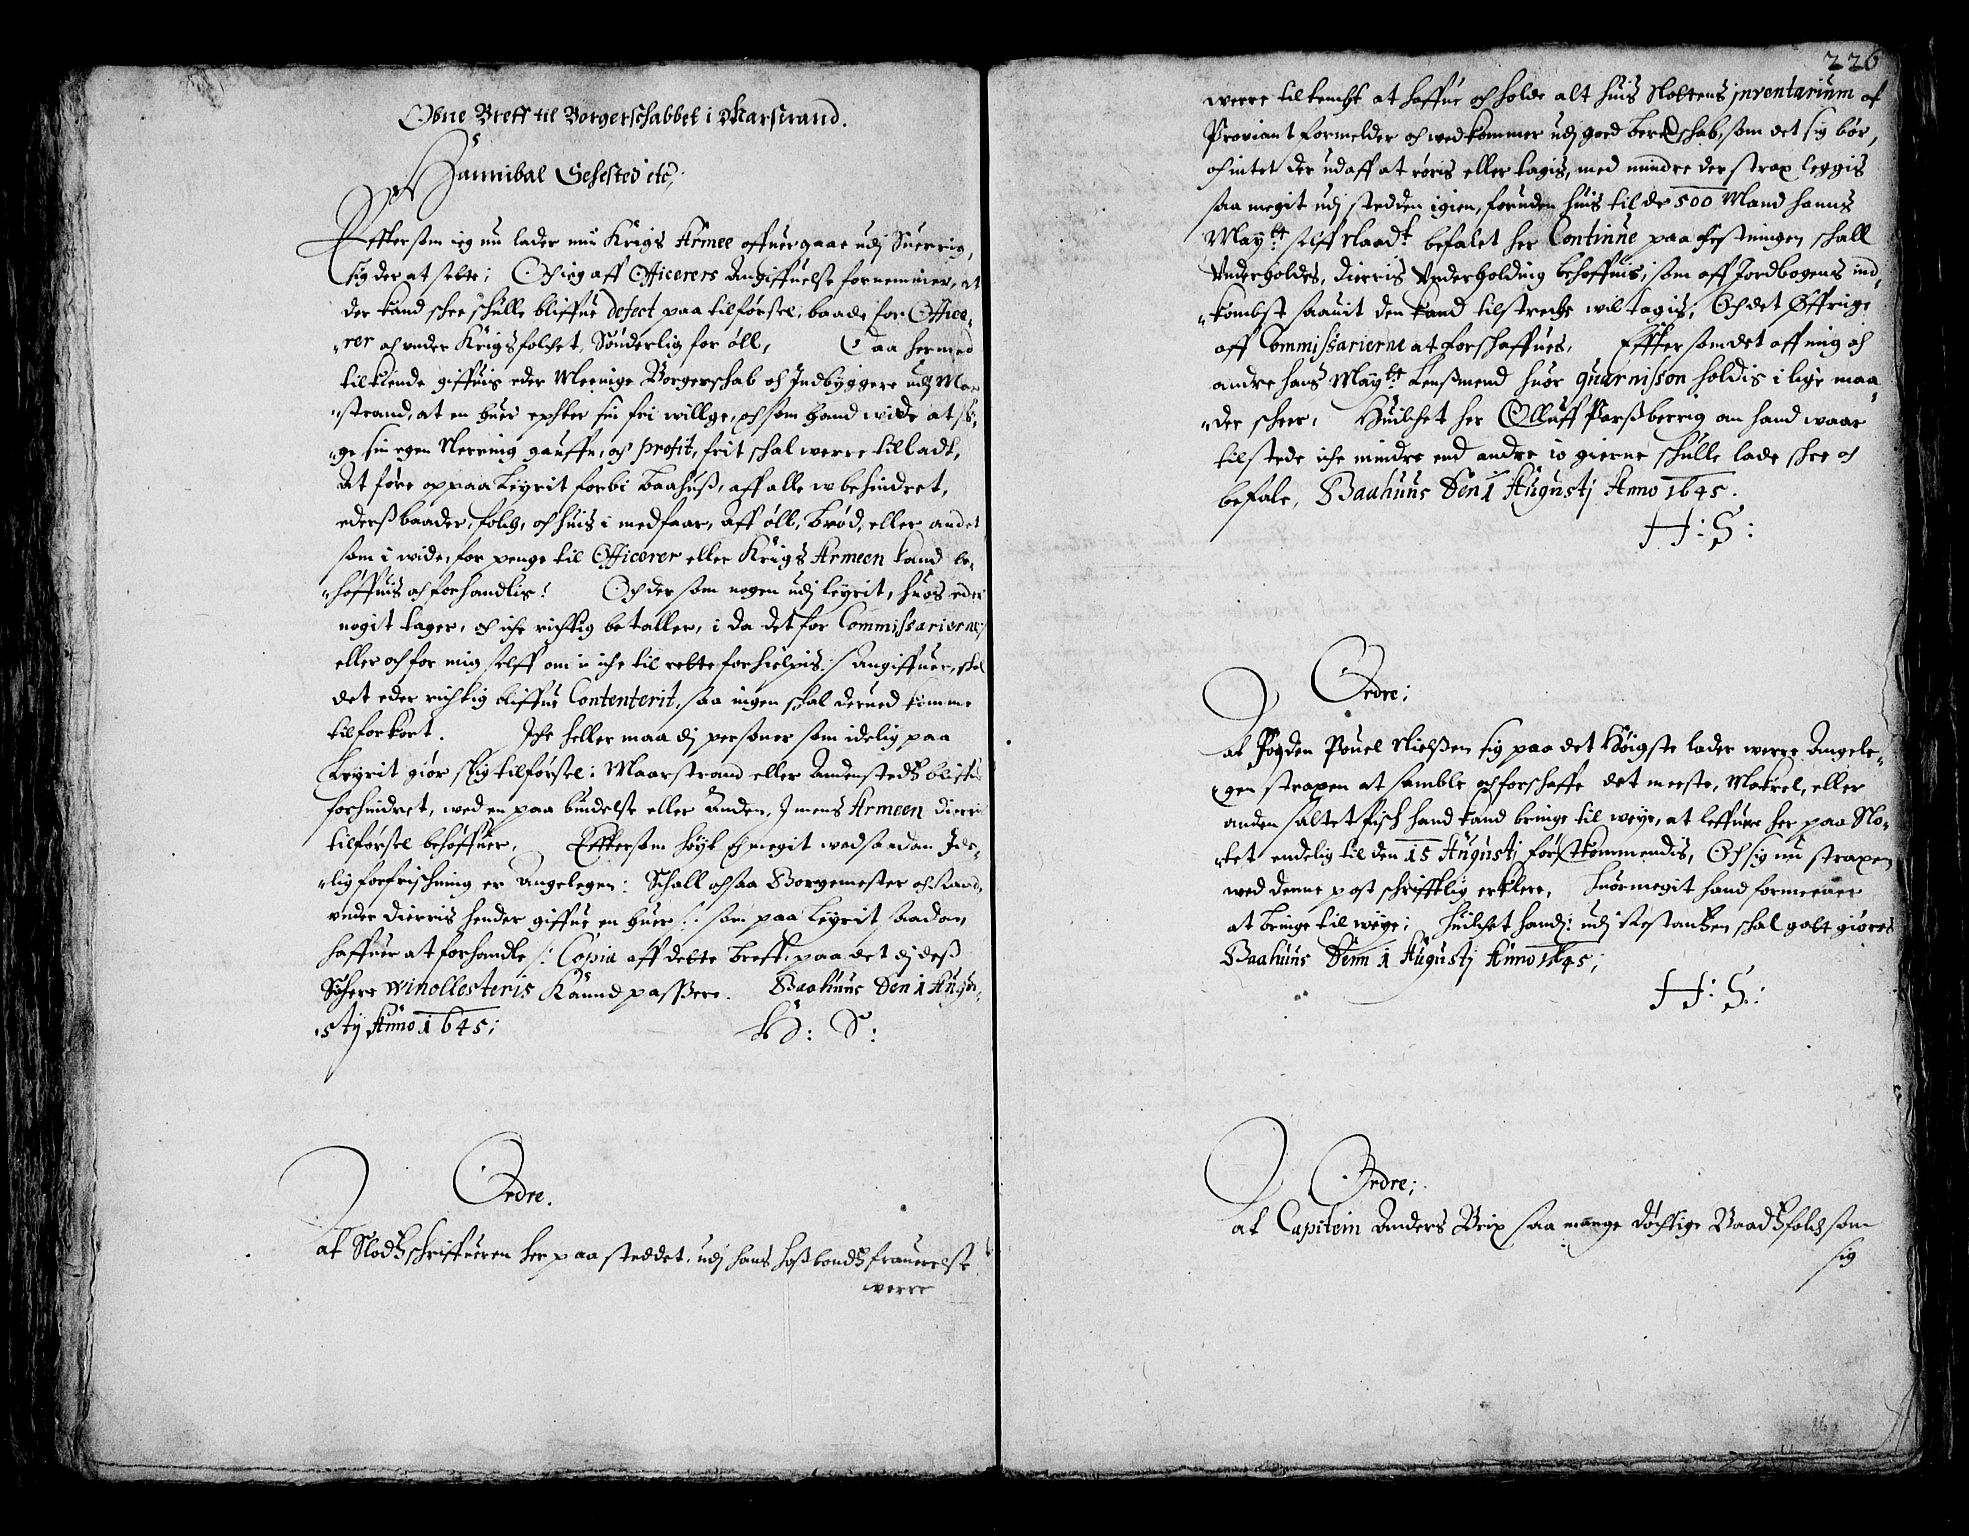 Obne Breff til Borgerschabbet i Marstrand.
Hannibal Sehested etc;
Effter som ieg nu lader min Krigs Armee offuergaae udj Suerrig,
sig der at sette; Och ieg aff Officerers Angiffuelse fornemmer, at
der kand schee schulle bliffue defect paa tilførsel, baade for Office-
-rer och under Krigsfolchet, Sønderlig for øll, Daa hermed
tilkiende giffuis eder Meenige Borgerschab och Indbyggere udj Mar-
-strand, at en huer epther sin fri willge, och som hand wide at sø-
-ge sin egen Nerring gauffn, och profit, frit schal werre tilladt,
At føre op paa Leyrit forbi Baahuß, aff alle wbehindret,
ederß baader, folch, och huis i medfaar, aff øll, brød, eller andet
som i wide, for penge til Officerer eller Krigs Armeen kand be-
-høffuis och forhandlis! Och der som nogen udj leyrit, huos eder
nogit tager, och iche richtig betaller, i da det for Commissarierne
eller och for mig self om i iche til rette forhielpis :/ angiffuer, schal
det eder richtig bliffue Contenterit, saa ingen schal derued komme
tilforkort. Iche heller maa dj personer som idelig paa
Leyrit giør slig tilførsel i Maarstrand eller Andenstedß bliffue
forhindret, wed en paabudelse eller Anden, Imens Armeen dierris
tilførsel behøffuer, Effter som høyt och megit wed saadan Ide-
-lig forfrischning er Angelegen: Schall ochsaa Borgemester och Raad,
under dierris hender giffue en huer /: som paa Leyrit saadan
haffuer at forhandle /: Copia aff dette breff, paa det dj deß
Sichere winollesteris Kannd passere. Baahuus Den 1 Augu-
-stij Anno 1645;
H: S:
Ordre.
at Slodßschriffueren her paa steddet, udj hans hoßbondß frauerelse
werre
226
werre tiltencht at haffue och holde alt huis Slottens inventarium af
Proviant formelder och wedkommer udj goed beredschab, som det sig bør,
och intet der udaff at røris eller tagis, med mindre der strax leggis
saa megit udj stedden igien, foruden huis til de 500 Mand hanns
Mayᵗᵗ self naadᵗ befalet her Continue paa festningen schall
Underholdes, dierris Underholding behøffuis, som aff Jordbogens ind-
-kombst saauit den kand tilstreche wil tagis, Och det Øffrige
aff Commissarierne at forschaffues. Effter som det aff mig och
andre hans Mayᵗᵗˢ Lensmend huor quarnisson holdis i lige maa-
-der scheer, Huilchet her Olluff Parßberrig om hand waar
tilstede iche mindre end andre io gierne schulle lade schee och
befale, Baahuus Den 1 Augustj Anno 1645.
H: S:
Ordre;
at Fogden Pouel Nielßen sig paa det Høigste lader werre Angele-
gen strapen at samble och forschaffe det meeste, Makrel, eller
anden saltet fisch hand kand bringe til weye, at leffuere her paa Slo-
-tet endelig til den 15 Augustj førstkommendis, Och sig nu strapen
wed denne post schrifftlig erklere, huormegit hand formeener
at bringe til weye; Huilchet handj: udj Restantzen schal godt giøres
Baahuus Denn 1 Augustj Anno 1645;
H: S:
Ordre;
at Capitein Anders Brix saa mange døchtige Baadßfolch som
sig